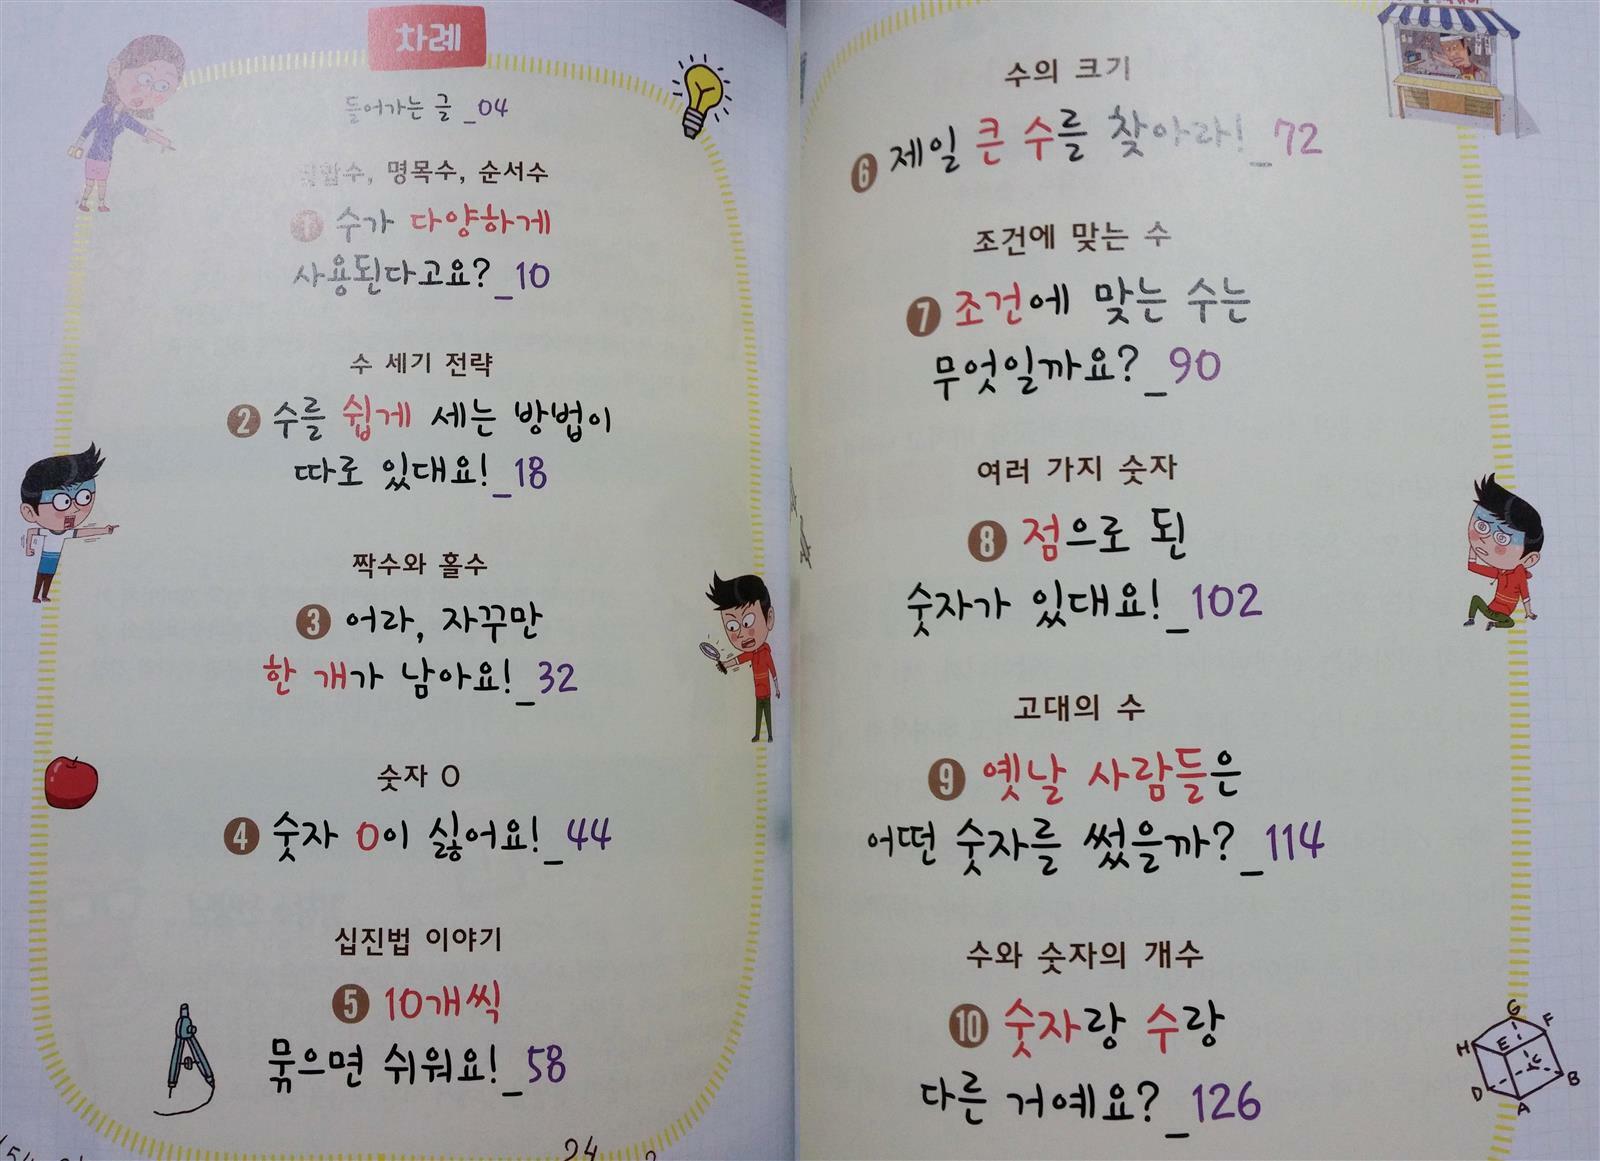 차례
들어가는 글 _04
명목수, 순서수
1 수가 다양하게
사용된다고요?_10
수 세기 전략
2 수를 쉽게 세는 방법이
따로 있대요!_18
짝수와 홀수
3 어라, 자꾸만
한 개가 남아요!_32
숫자 0
4 숫자 0이 싫어요!_44
십진법 이야기
5 10개씩
묶으면 쉬워요!_58
24
수의 크기
6 제일 큰 수를 찾아라!_72
조건에 맞는 수
7 조건에 맞는 수는
무엇일까요?_90
여러 가지 숫자
8 점으로 된
숫자가 있대요!_102
고대의 수
9 옛날 사람들은
어떤 숫자를 썼을까?_114
수와 숫자의 개수
10 숫자랑 수랑
다른 거예요?_126
G
F
H
E
C
B
D
A